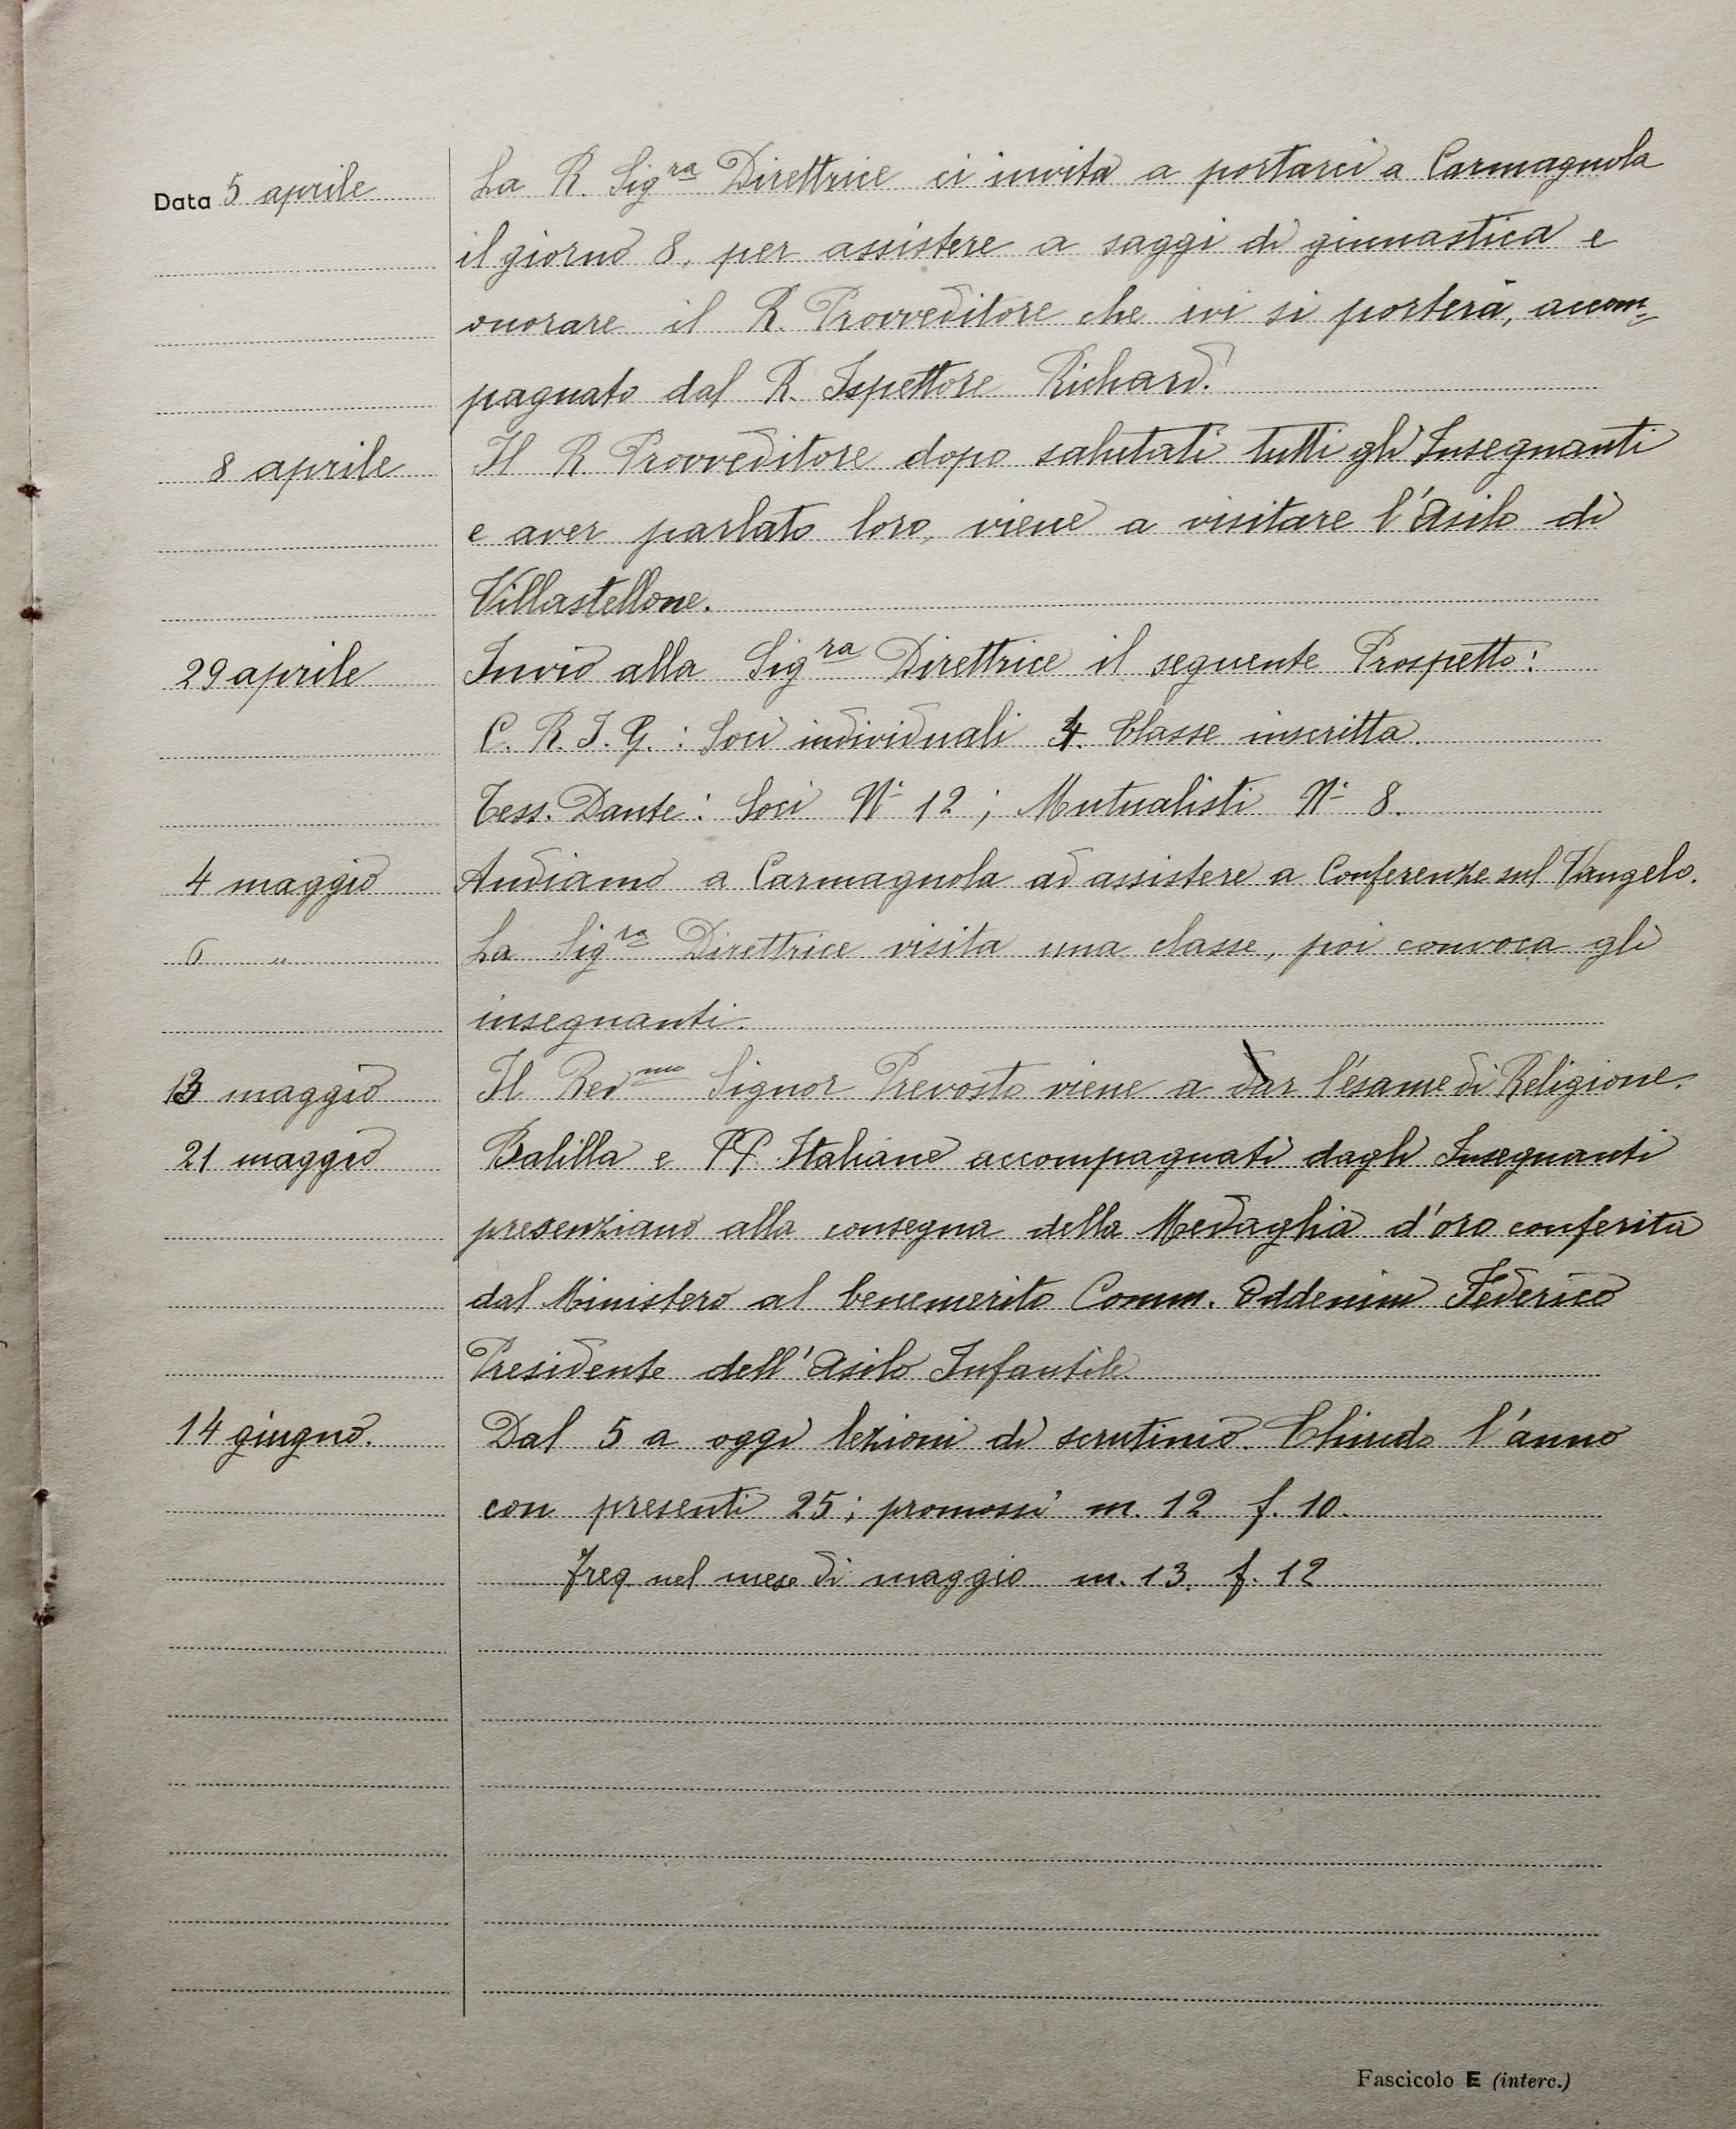 Data 5 aprile La R. Sig.ra Direttrice ci invita a portarci a Carmagnola
il giorno 8, per assistere a saggi di ginnastica e
onorare il R. Provveditore che ivi si porterà, accom=
pagnato dal R. Ispettore Richard.
8 aprile Il R Provveditore dopo salutati tutti gli Insegnanti
e aver parlato loro, viene a visitare l'Asilo di
Villastellone.
29 aprile Invio alla Sig.ra Direttrice il seguente Prospetto:
C. R. I. G. : Soci individuali 4. Classe inscritta.
Tess. Dante: Soci N° 12 ; Mutualisti N° 8.
4 maggio Andiamo a Carmagnola ad assistere a Conferenze sul Vangelo.
6 " La Sig.ra Direttrice visita una classe, poi convoca gli
insegnanti.
13 maggio Il Revmo Signor Prevosto viene a dar l'esame di Religione.
21 maggio Balilla e PP. Italiane accompagnati dagli Insegnanti
presenziano alla consegna della Medaglia d'oro conferita
dal Ministero al benemerito Comm. Oddenino Federico
Presidente dell'Asilo Infantile.
14 giugno. Dal 5 a oggi lezioni di scrutinio. Chiudo l'anno
con presenti 25; promossi m. 12 f. 10.
Freq. nel mese di maggio m. 13. f. 12
Fascicolo E (interc.)